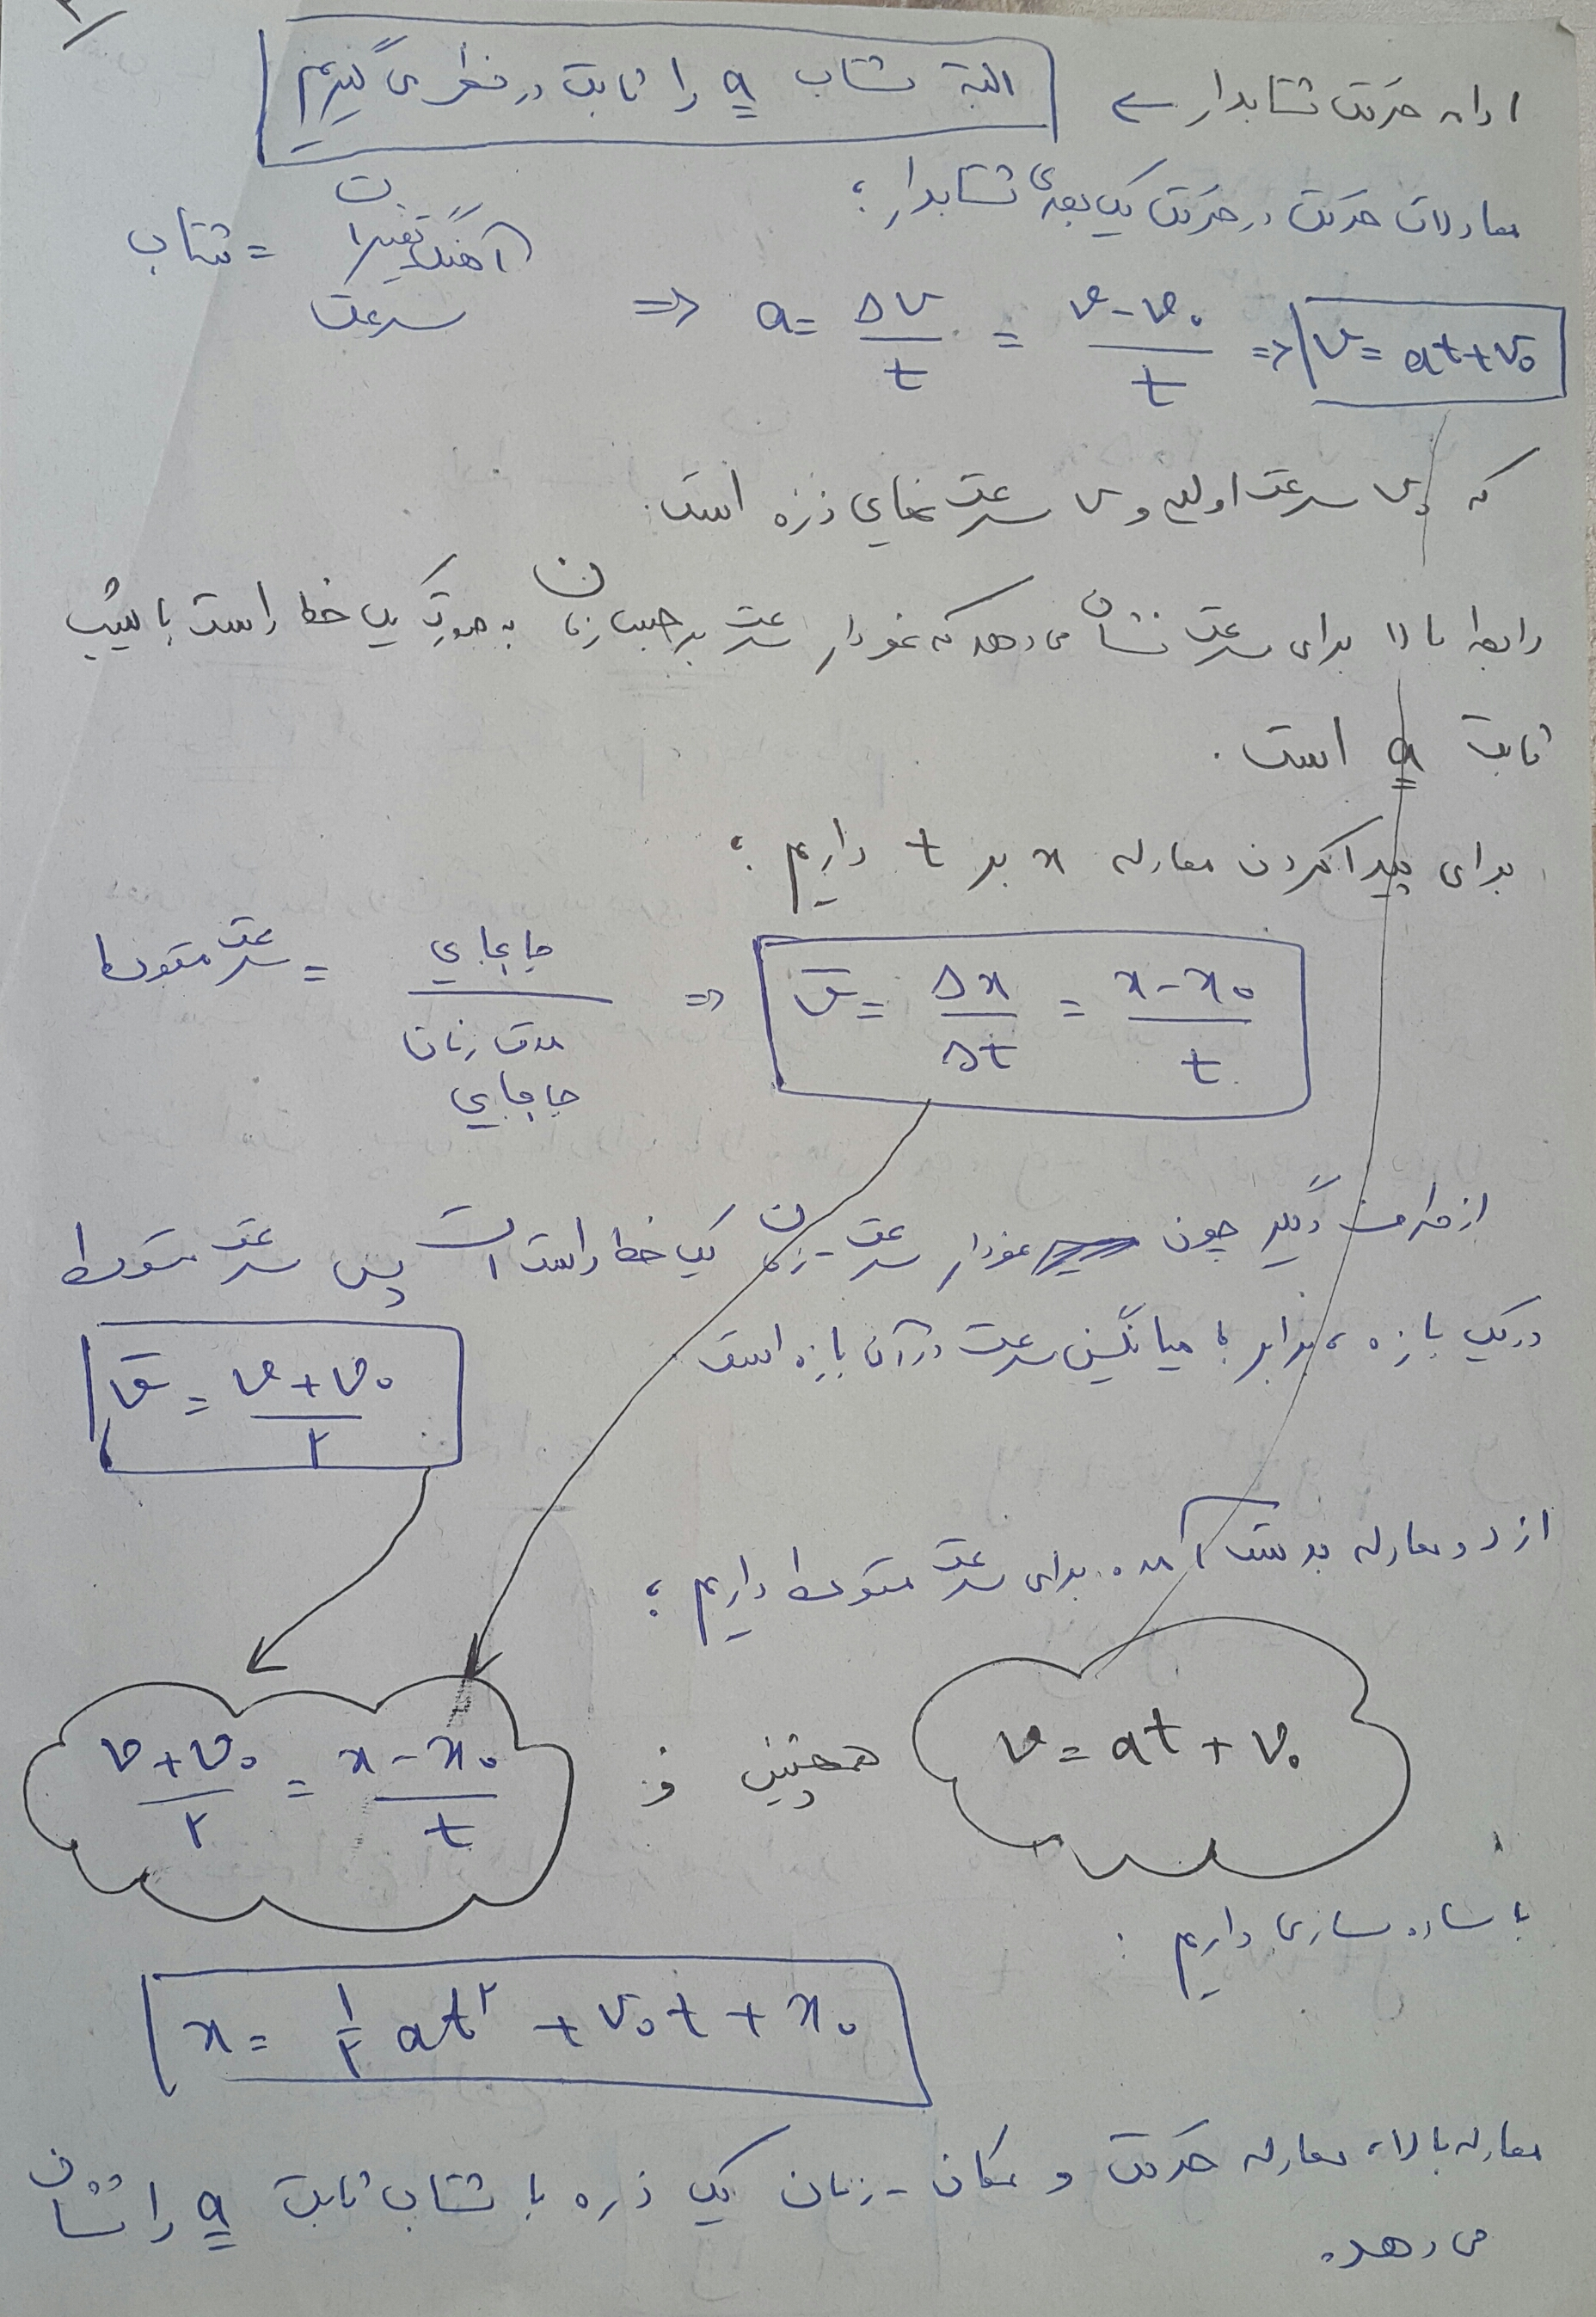 ادامه حرکت شتابدار ← البته شتاب a را ثابت در نظر می گیریم
معادلات حرکت در حرکت یک بعدی شتابدار :
شتاب = آهنگ تغییرات سرعت ⇒ a = Δv/t = (v - v₀)/t ⇒ v = at + v₀
که v₀ سرعت اولیه و v سرعت نهایی ذره است.
رابطه بالا برای سرعت نشان می دهد که نمودار سرعت بر حسب زمان به صورت یک خط راست با شیب
ثابت a است .
برای پیدا کردن معادله x بر t داریم :
سرعت متوسط = جابجایی / مدت زمان جابجایی ⇒ v̄ = Δx/Δt = (x - x₀)/t
از طرف دیگر چون نمودار سرعت - زمان یک خط راست است پس سرعت متوسط
در یک بازه ، برابر با میانگین سرعت در آن بازه است .
v̄ = (v + v₀)/۲
از دو معادله بدست آمده برای سرعت متوسط داریم :
(v + v₀)/۲ = (x - x₀)/t و همچنین v = at + v₀
با ساده سازی داریم :
x = ۱/۲ at^۲ + v₀t + x₀
معادله بالا ، معادله حرکت و مکان - زمان یک ذره با شتاب ثابت a را نشان
می دهد.